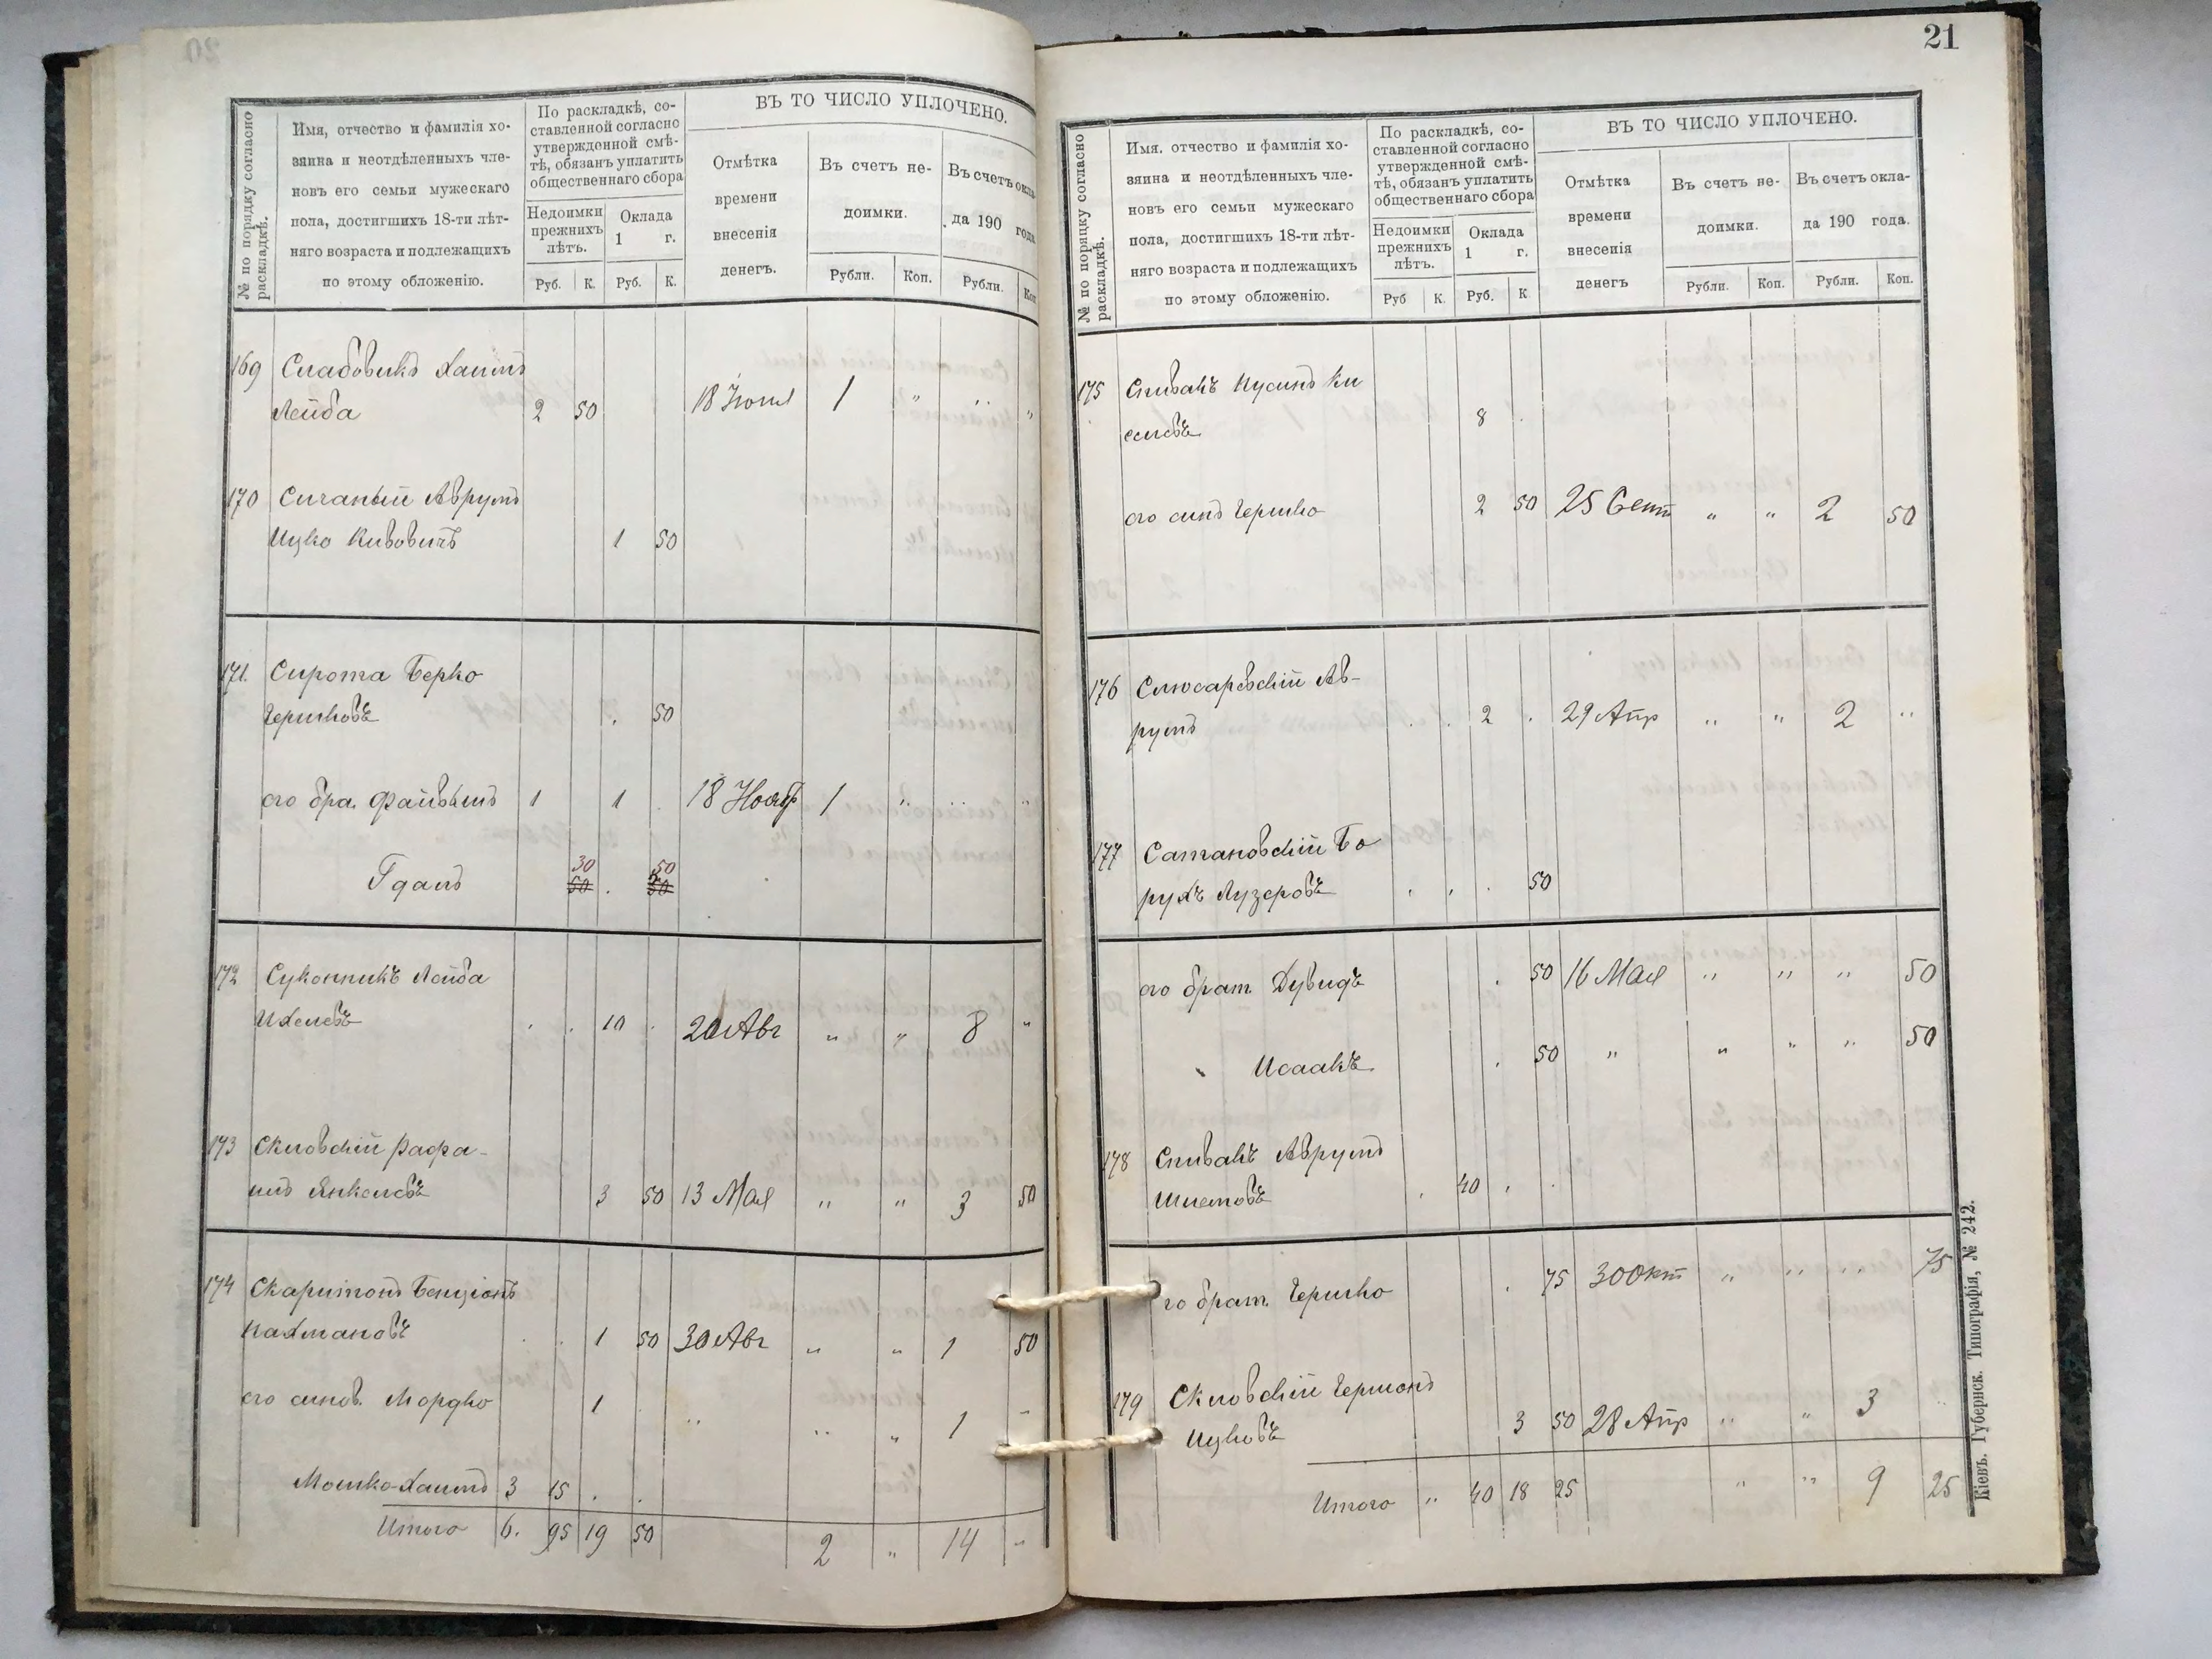 № по порядку согласно
раскладкѣ.
Имя, отчество и фамилія хо-
зяина и неотдѣленныхъ чле-
новъ его семьи мужескаго
пола, достигшихъ 18-ти лѣт-
няго возраста и подлежащихъ
по этому обложенію.
По раскладкѣ, со-
ставленной согласно
утвержденной смѣ-
тѣ, обязанъ уплатить
общественнаго сбора
Недоимки
прежнихъ
лѣтъ.
Оклада
1 г.
Руб. К. Руб. К.
ВЪ ТО ЧИСЛО УПЛОЧЕНО.
Отмѣтка
времени
внесенія
денегъ.
Въ счетъ не-
доимки.
Въ счетъ окла
да 190 года
Рубли. Коп. Рубли. Коп
169 Слабовикъ Хаимъ
Лейба 2 50 18 Іюля 1 " " "
170 Сичаный Аврумъ
Ицко Кивовичъ 1 50
171. Сирота Берко
Гершковъ . 50
его бра. Файвышъ 1 1 . 18 Нояб 1 " " "
30 50
Гдаль 50 . 50
172 Суконникъ Лейба
Ихелевъ . . 10 . 20 Авг " " 8 "
173 Скловскій Рафа-
илъ Янкелевъ 3 50 13 Мая " " 3 50
174 Скаритонъ Бенціонъ
Нахмановъ . . 1 50 30 Авг " " 1 50
его сынов. Мордко 1 " " " 1 -
Мошко-Хаимъ 3 15 . .
Итого 6. 95 19 50 2 " 14 -
21
№ по порядку согласно
раскладкѣ.
Имя. отчество и фамилія хо-
зяина и неотдѣленныхъ чле-
новъ его семьи мужескаго
пола, достигшихъ 18-ти лѣт-
няго возраста и подлежащихъ
по этому обложенію.
По раскладкѣ, со-
ставленной согласно
утвержденной смѣ-
тѣ, обязанъ уплатить
общественнаго сбора
Недоимки
прежнихъ
лѣтъ.
Оклада
1 г.
Руб К. Руб. К
ВЪ ТО ЧИСЛО УПЛОЧЕНО.
Отмѣтка
времени
внесенія
денегъ
Въ счетъ не-
доимки.
Въ счетъ окла-
да 190 года.
Рубли. Коп. Рубли. Коп.
175 Спивакъ Нусинъ Ки
селевъ 8 .
его сынъ Гершко 2 50 25 Сент " " 2 50
176 Слюсаревскій Ав-
румъ . . 2 . 29 Апр " " 2 "
177 Сатановскій Бо
рухъ Лузеровъ . . . 50
его брат. Дувидъ . 50 16 Мая " " " 50
" Исаакъ . 50 " " " " 50
178 Спивакъ Аврумъ
Шлемовъ . 40 . .
го брат. Гершко . 75 30 Окт " " " 75
179 Скловскій Гершонъ
Ицковъ 3 50 28 Апр " " 3 "
Итого " 40 18 25 " " 9 25
Кіевъ. Губернск. Типографія, № 242.